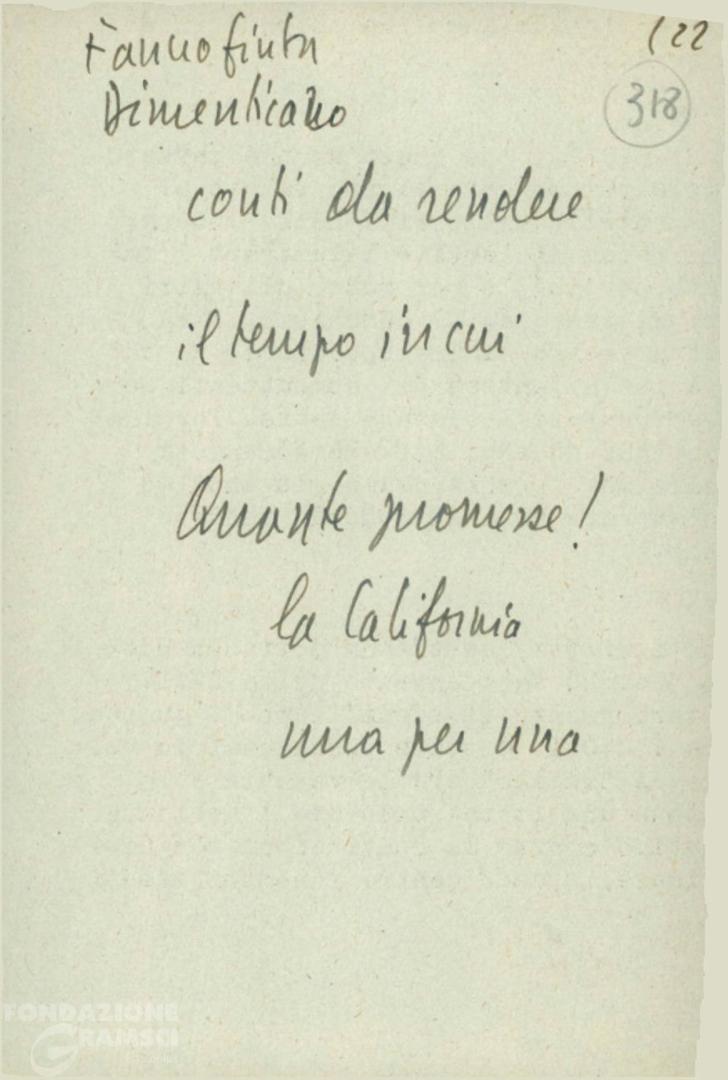 122
318
Fanno finta
Dimenticano
conti da rendere
il tempo in cui
Quante promesse!
la California
una per una
FONDAZIONE
GRAMSCI